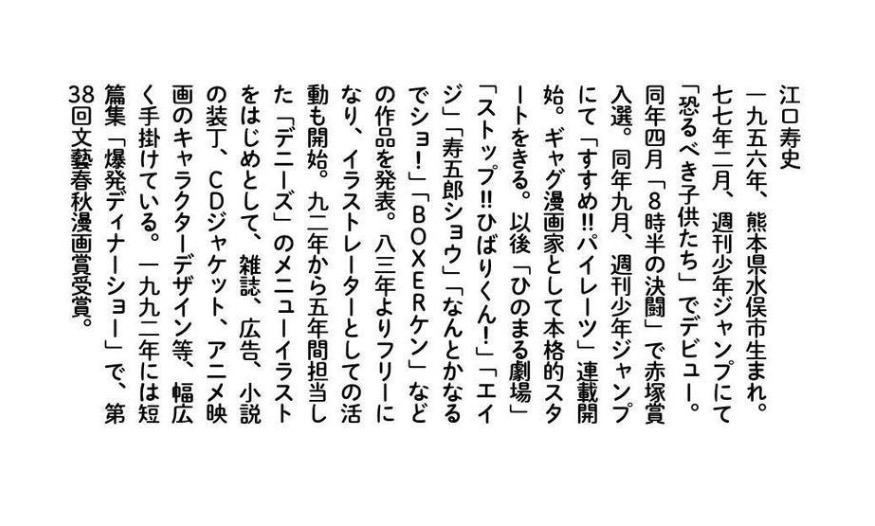 江口寿史
一九五六年、熊本県水俣市生まれ。
七七年二月、週刊少年ジャンプにて
「恐るべき子供たち」でデビュー。
同年四月「8時半の決闘」で赤塚賞
入選。同年九月、週刊少年ジャンプ
にて「すすめ!!パイレーツ」連載開
始。ギャグ漫画家として本格的スタ
ートをきる。以後「ひのまる劇場」
「ストップ!!ひばりくん！」「エイ
ジ」「寿五郎ショウ」「なんとかなる
でショ！」「BOXERケン」など
の作品を発表。八三年よりフリーに
なり、イラストレーターとしての活
動も開始。九二年から五年間担当し
た「デニーズ」のメニューイラスト
をはじめとして、雑誌、広告、小説
の装丁、CDジャケット、アニメ映
画のキャラクターデザイン等、幅広
く手掛けている。一九九二年には短
篇集「爆発ディナーショー」で、第
38回文藝春秋漫画賞受賞。